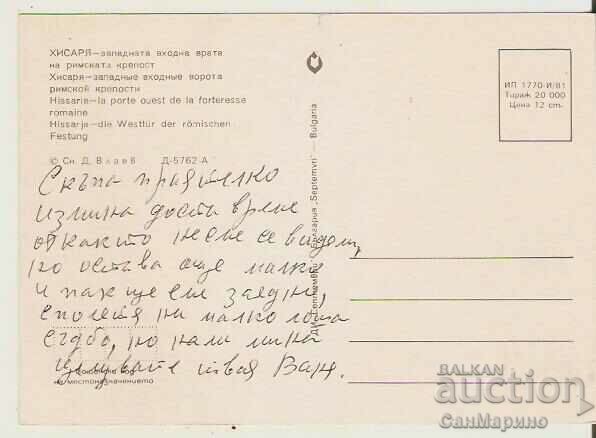 ХИСАРЯ—западната входна врата
на римската крепост
Хисаря—западные входные ворота
римской крепости
Hissaria—la porte ouest de la forteresse
romaine
Hissarja—die Westtür der römischen
Festung
© Сн. Д. Влаев Д-5762-А
ИП 1770-И/81
Тираж 20 000
Цена 12 ст.
ДИ „Септември“ България „Septemvri“ — Bulgaria
Скъпа приятелко
измина доста време
откакто не сме се видели,
но остава още малко
и пак ще сме заедно,
сполетя ни малко лоша
съдба, но нали мина
целувате твоя Ван.
на местоназначението
BALKAN
auction
СанМарино